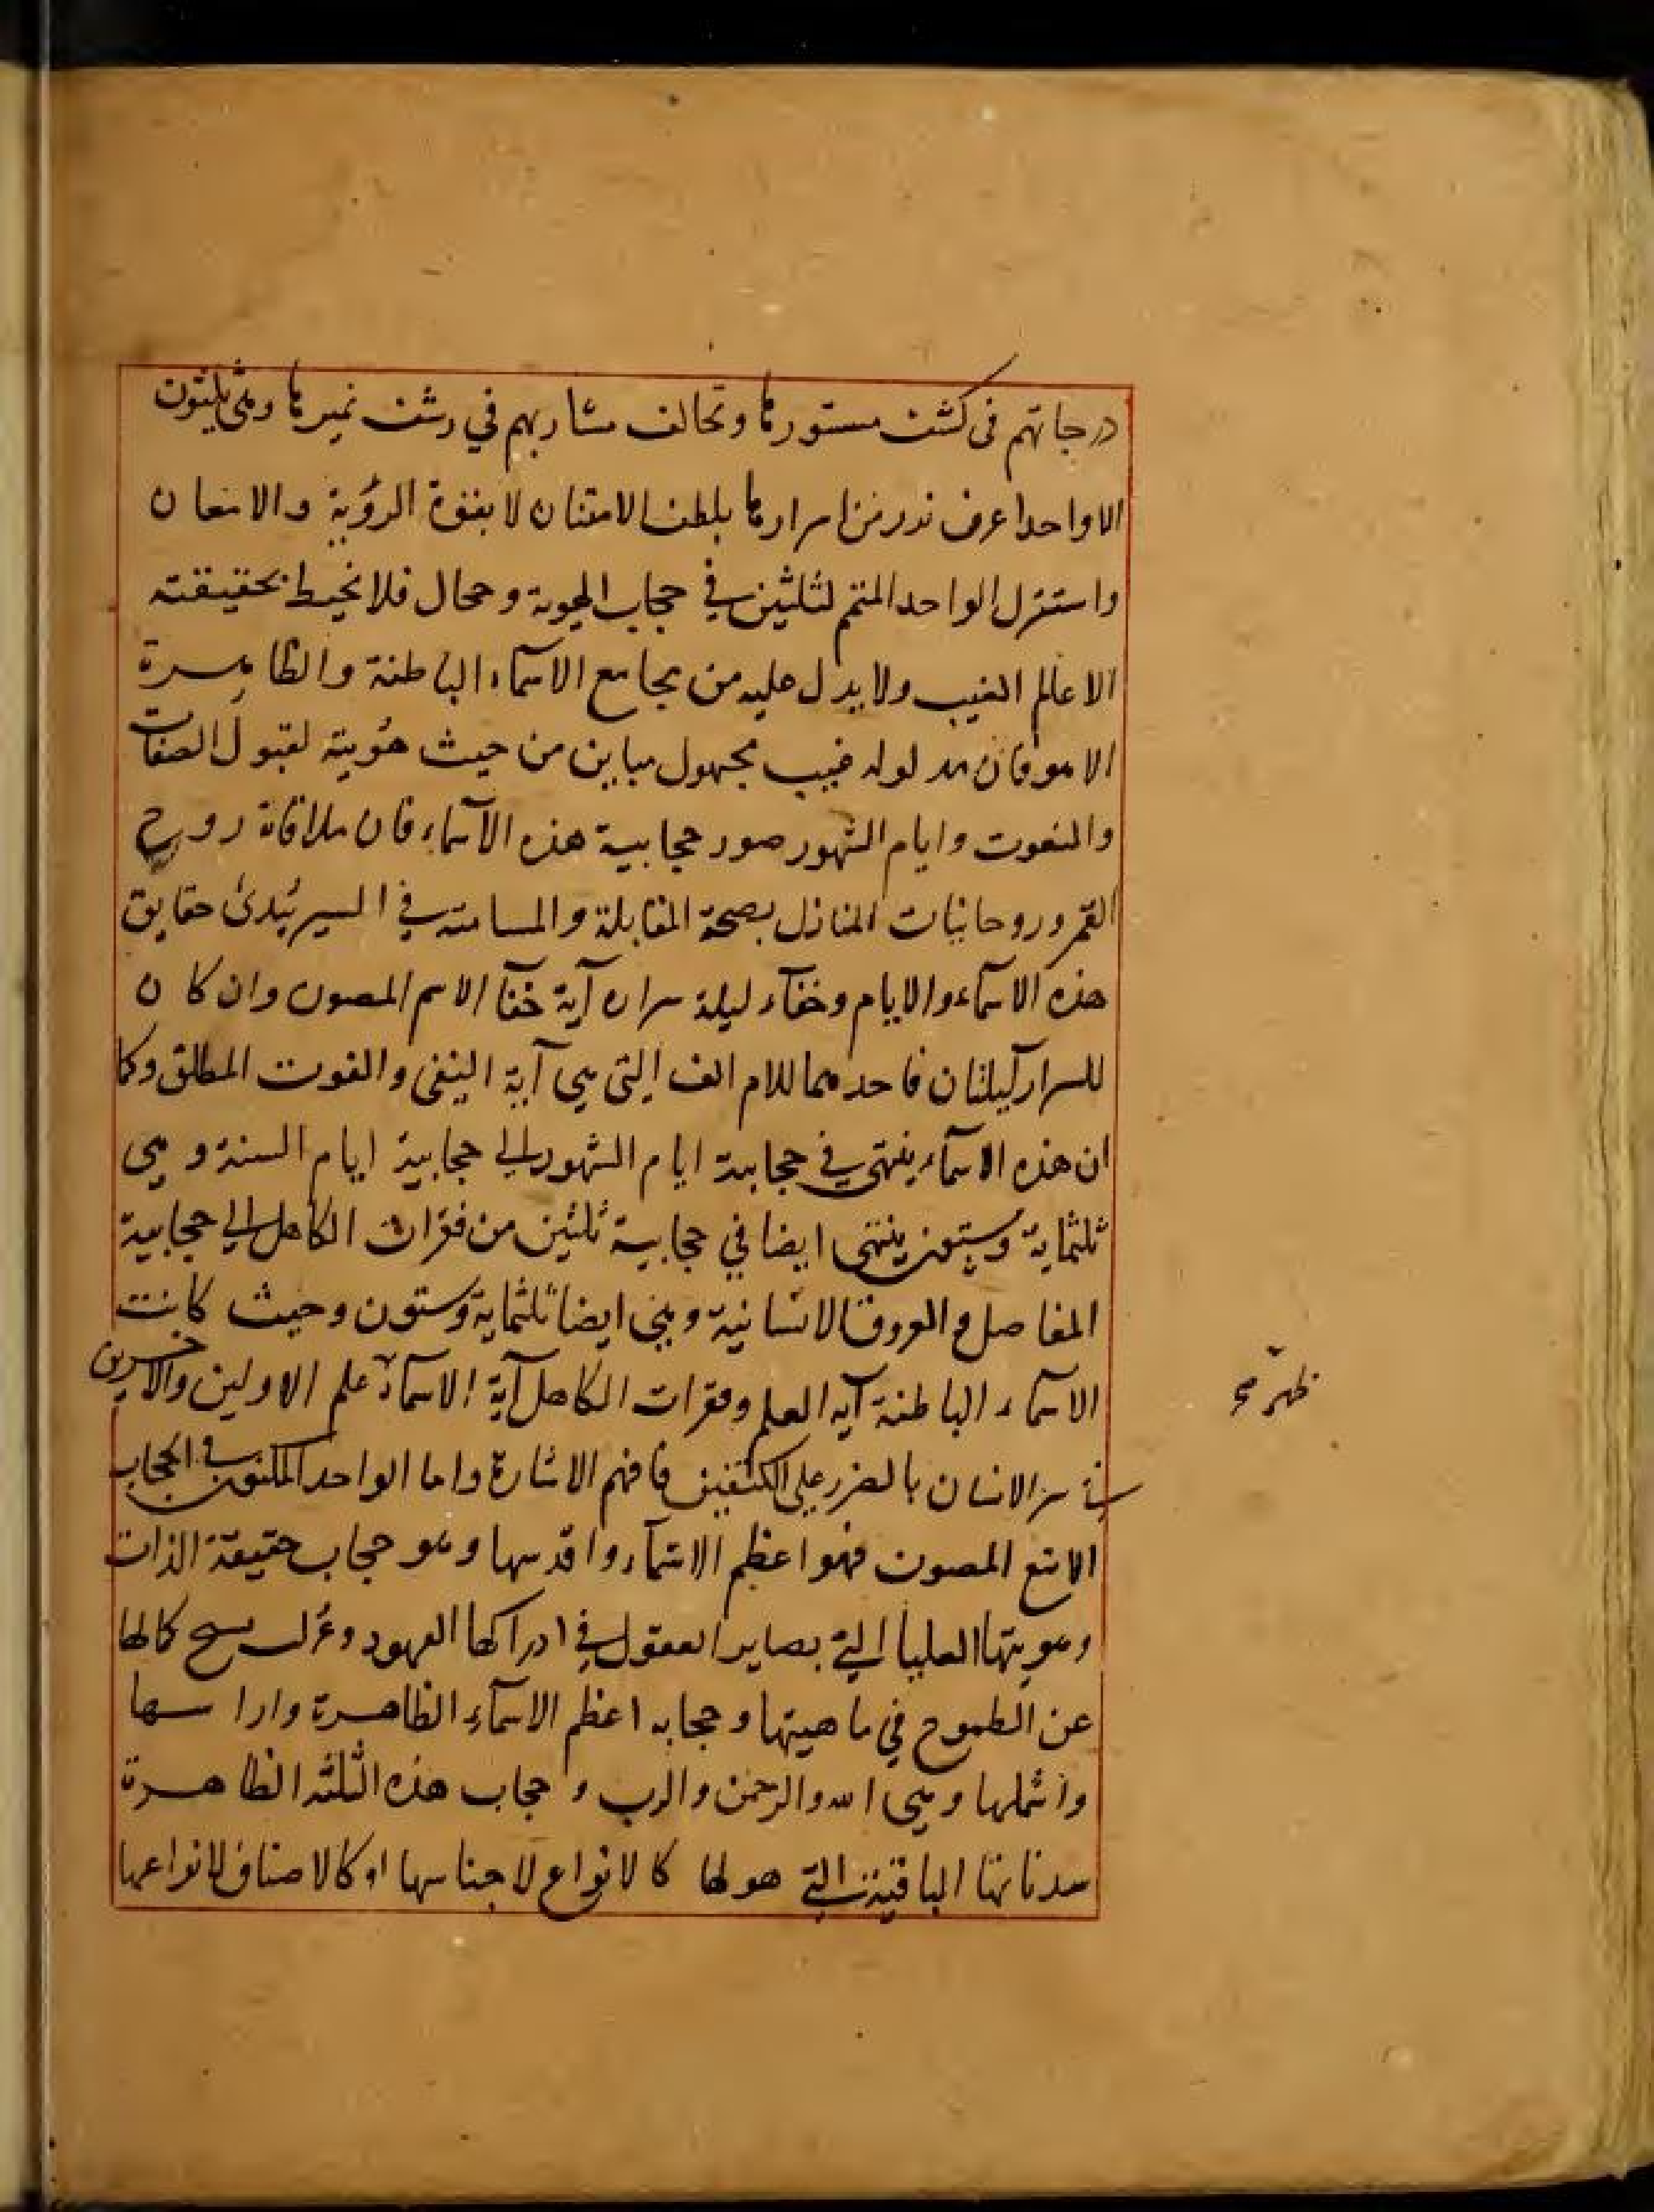 درجاتهم فى كشف مستورها وتخالف مشاربهم في رشف نميرها وهى ثلثون
الا واحدا عرف نذر من اسرارها بلطف الامتنان لا بقوة الرؤية والامعان
واستنزل الواحد المتم لثلثين في حجاب الهوية ومحال فلا نحيط بحقيقته
الا عالم الغيب ولا يدل عليه من مجامع الاسماء الباطنة والظاهرة
الا هو فان مدلوله غيب مجهول مباين من حيث هويته لقبول الصفات
والنعوت وايام الشهور صور حجابية هذه الاسماء فان ملاقاة روح
القمر وروحانيات المنازل بصحة المقابلة والمسامتة في السير يبدئ حقايق
هذه الاسماء والايام وخفاء ليلة سراره آية خفا الاسم المصون وان كان
للسرار ليلتان فاحدهما للام الف التى هى آية النفى والفوت المطلق وكما
ان هذه الاسماء ينتهى في حجابية ايام الشهور الى حجابية ايام السنة وهى
ثلثماية وستون ينتهى ايضا في حجابية ثلثين من فقرات الكاهل الى حجابية
المفاصل والعروق الانسانية وهى ايضا ثلثماية وستون وحيث كانت
الاسماء الباطنة آية العلم وفقرات الكاهل آية الاسماء علم الاولين والاخرين
سر الانسان بالضرر على الكتفين فافهم الاشارة واما الواحد المكنون في الحجاب
الامنع المصون فهو اعظم الاسماء واقدسها وهو حجاب حقيقة الذات
وهويتها العليا التي بصاير العقول في ادراكها العهود وعزلت كالها
عن الطموح في ماهيتها وحجابه اعظم الاسماء الظاهرة وارا سها
واشملها وهى الله والرحمن والرب وحجاب هذه الثلثه الظاهرة
سدناتها الباقية التي هو لها كالانواع لاجناسها او كالاصناف لانواعها
ظهر